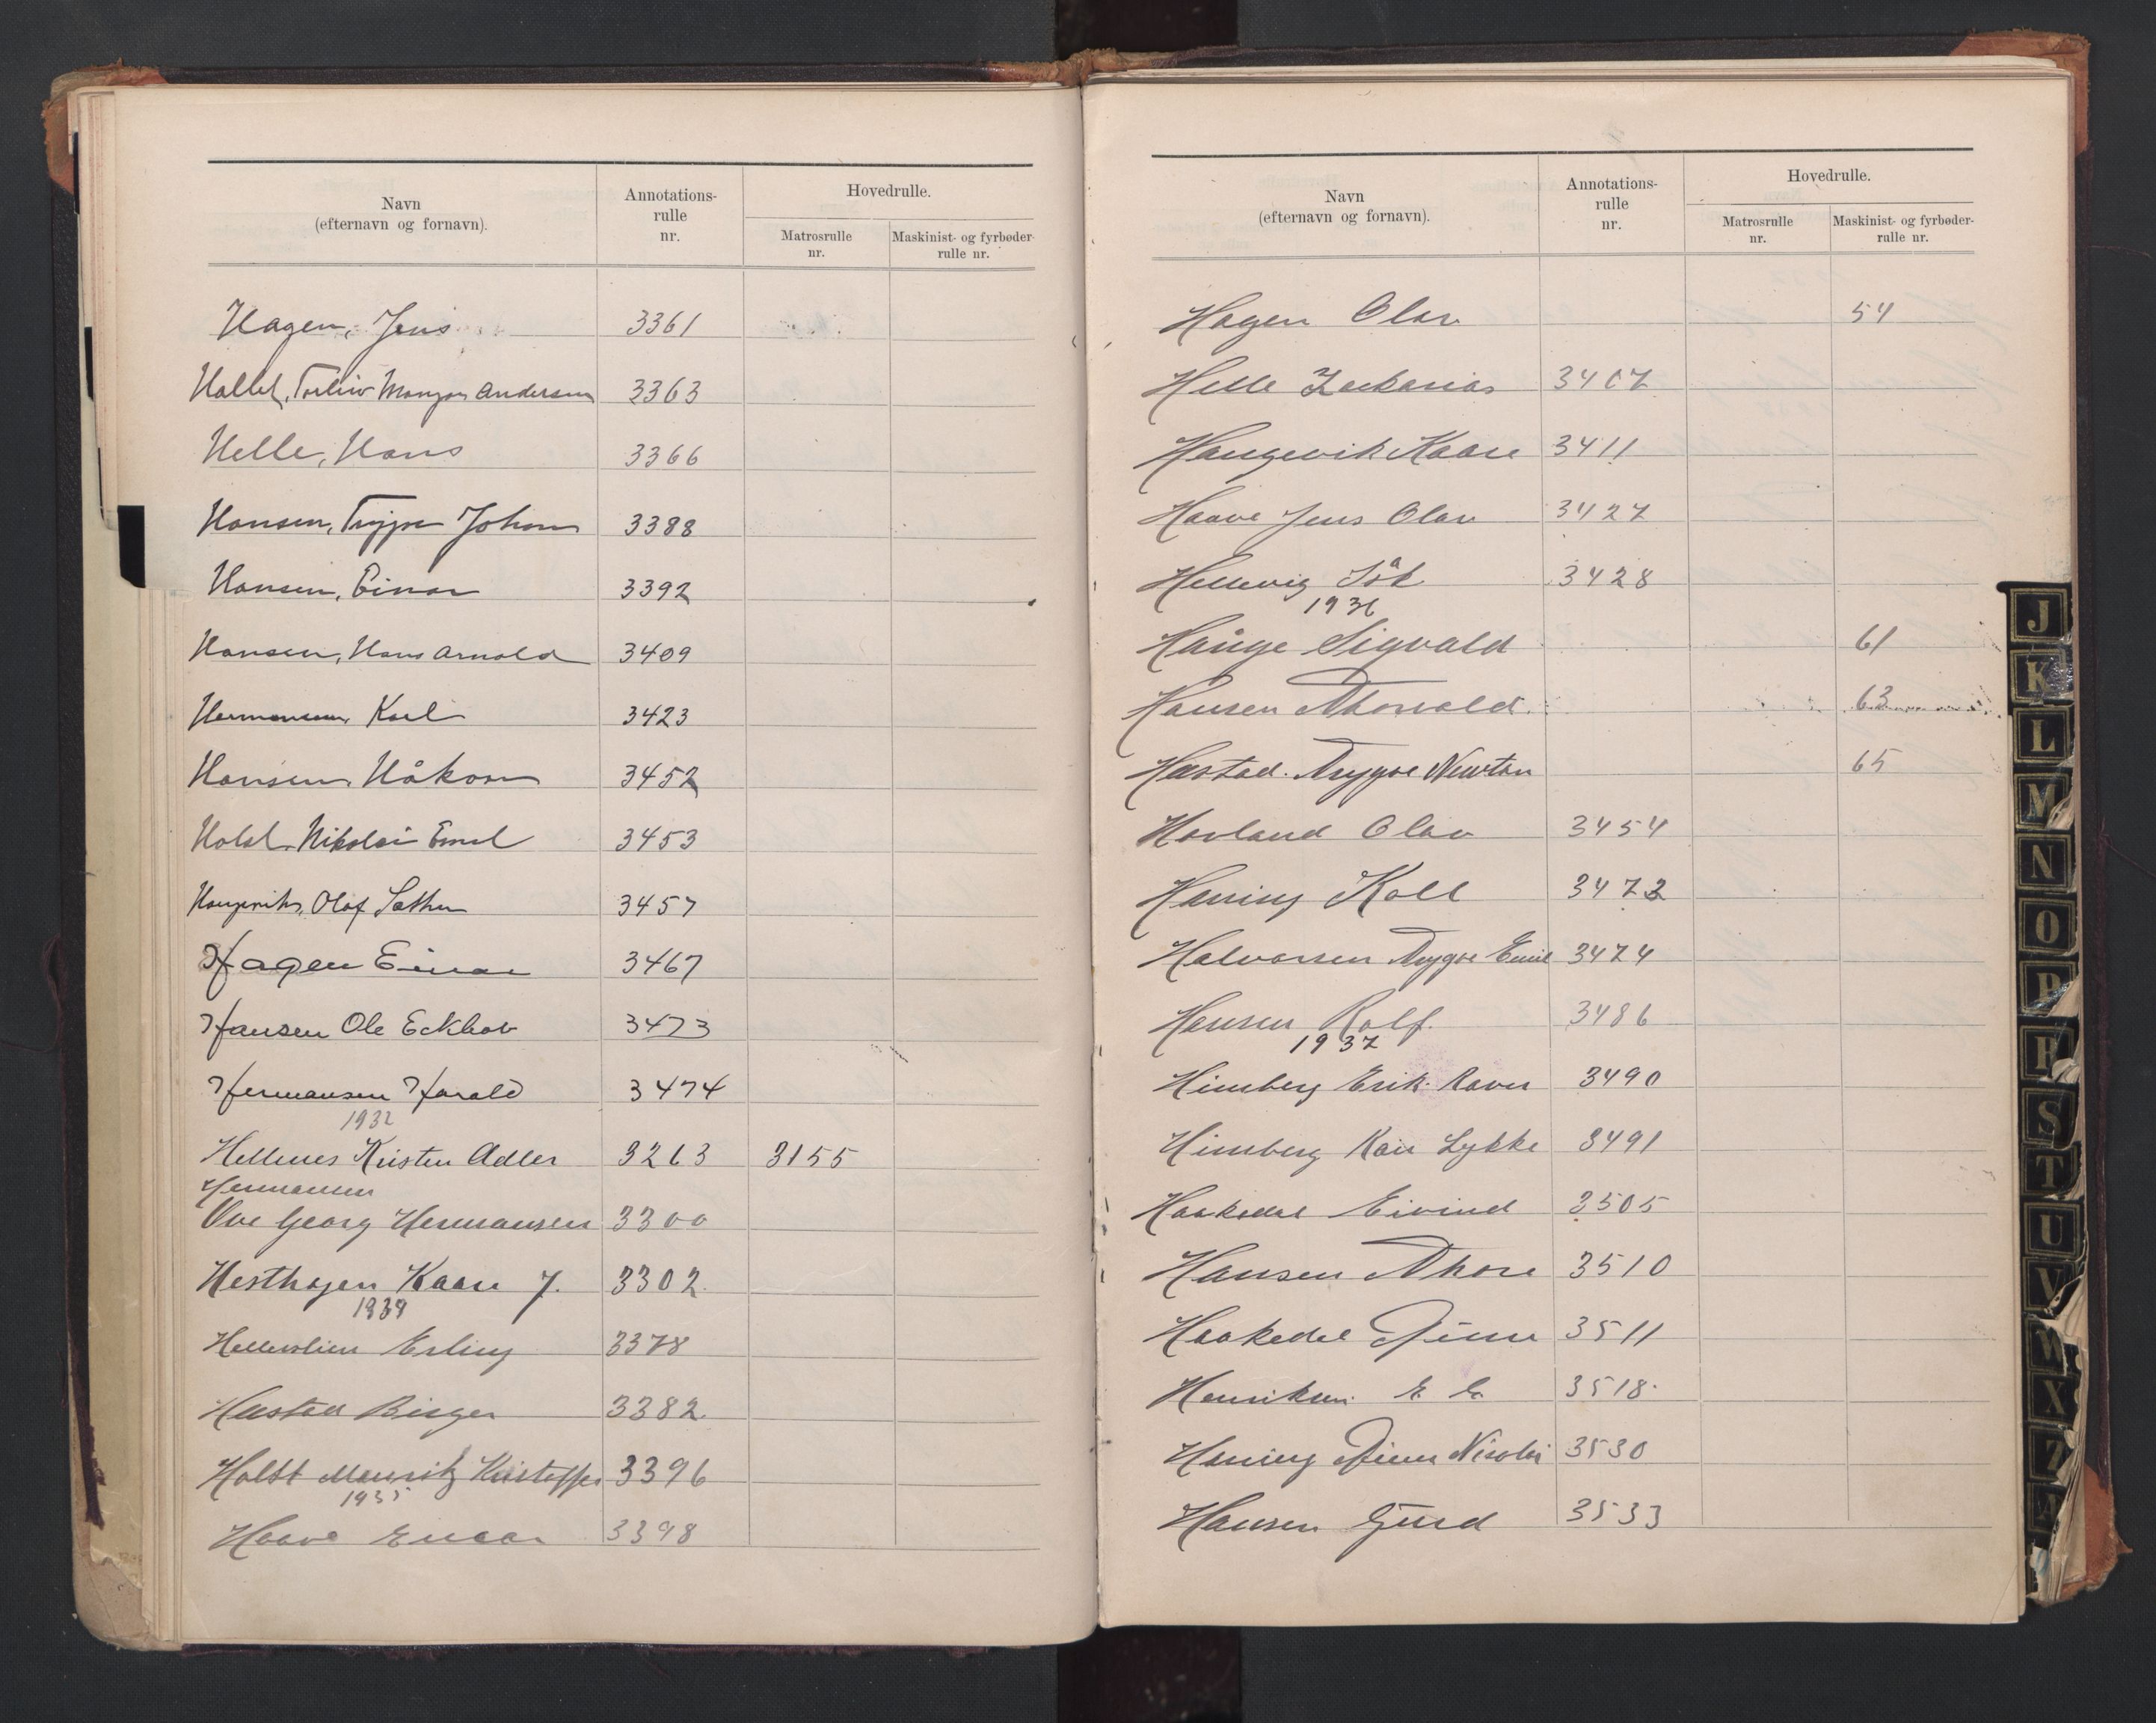 Navn
(efternavn og fornavn).
Annotations-
rulle
nr.
Hovedrulle.
Matrosrulle
nr.
Maskinist- og fyrbøder-
rulle nr.
Hagen, Jens 3361
3363
Helle, Hans 3366
Hansen, Trygve Johan 3388
Hansen, Einar 3392
Hansen, Hans Arnold 3409
Hermansen, Karl 3423
Hansen, Håkon 3452
Holst, Nikolai Emil 3453
Olaf 3457
Hagen Einar 3467
Hansen Ole Eckhov 3473
Hermansen Harald 3474
1932
Hellenes Kristen Adler 3263 3155
Hermansen
Ove Georg Hermansen 3300
Hesthagen Kaare J. 3302
1934
Erling 3378
Hæstad Birger 3382
Holst Mauritz 3396
1935
Haave Einar 3398
Navn
(efternavn og fornavn).
Annotations-
rulle
nr.
Hovedrulle.
Matrosrulle
nr.
Maskinist- og fyrbøder-
rulle nr.
Hagen Olav 54
Helle Zakarias 3407
Haugevik Kaare 3411
Haave Jens Olav 3427
Hellevig 3428
1936
Hauge Sigvald 61
Hansen Thorvald 63
Hæstad. Trygve Newton 65
Hovland Olav 3454
Hæning 3472
Halvorsen Trygve Emil 3474
Hansen Rolf. 3486
1937
Himberg Erik 3490
Himberg Kai Lykke 3491
Haakedal Eivind 3505
Hansen Thore 3510
Haakedal 3511
Henriksen 3518
Hæning 3530
Hansen 3533
J
K
L
M
N
O
P
R
S
T
U
V
W
X